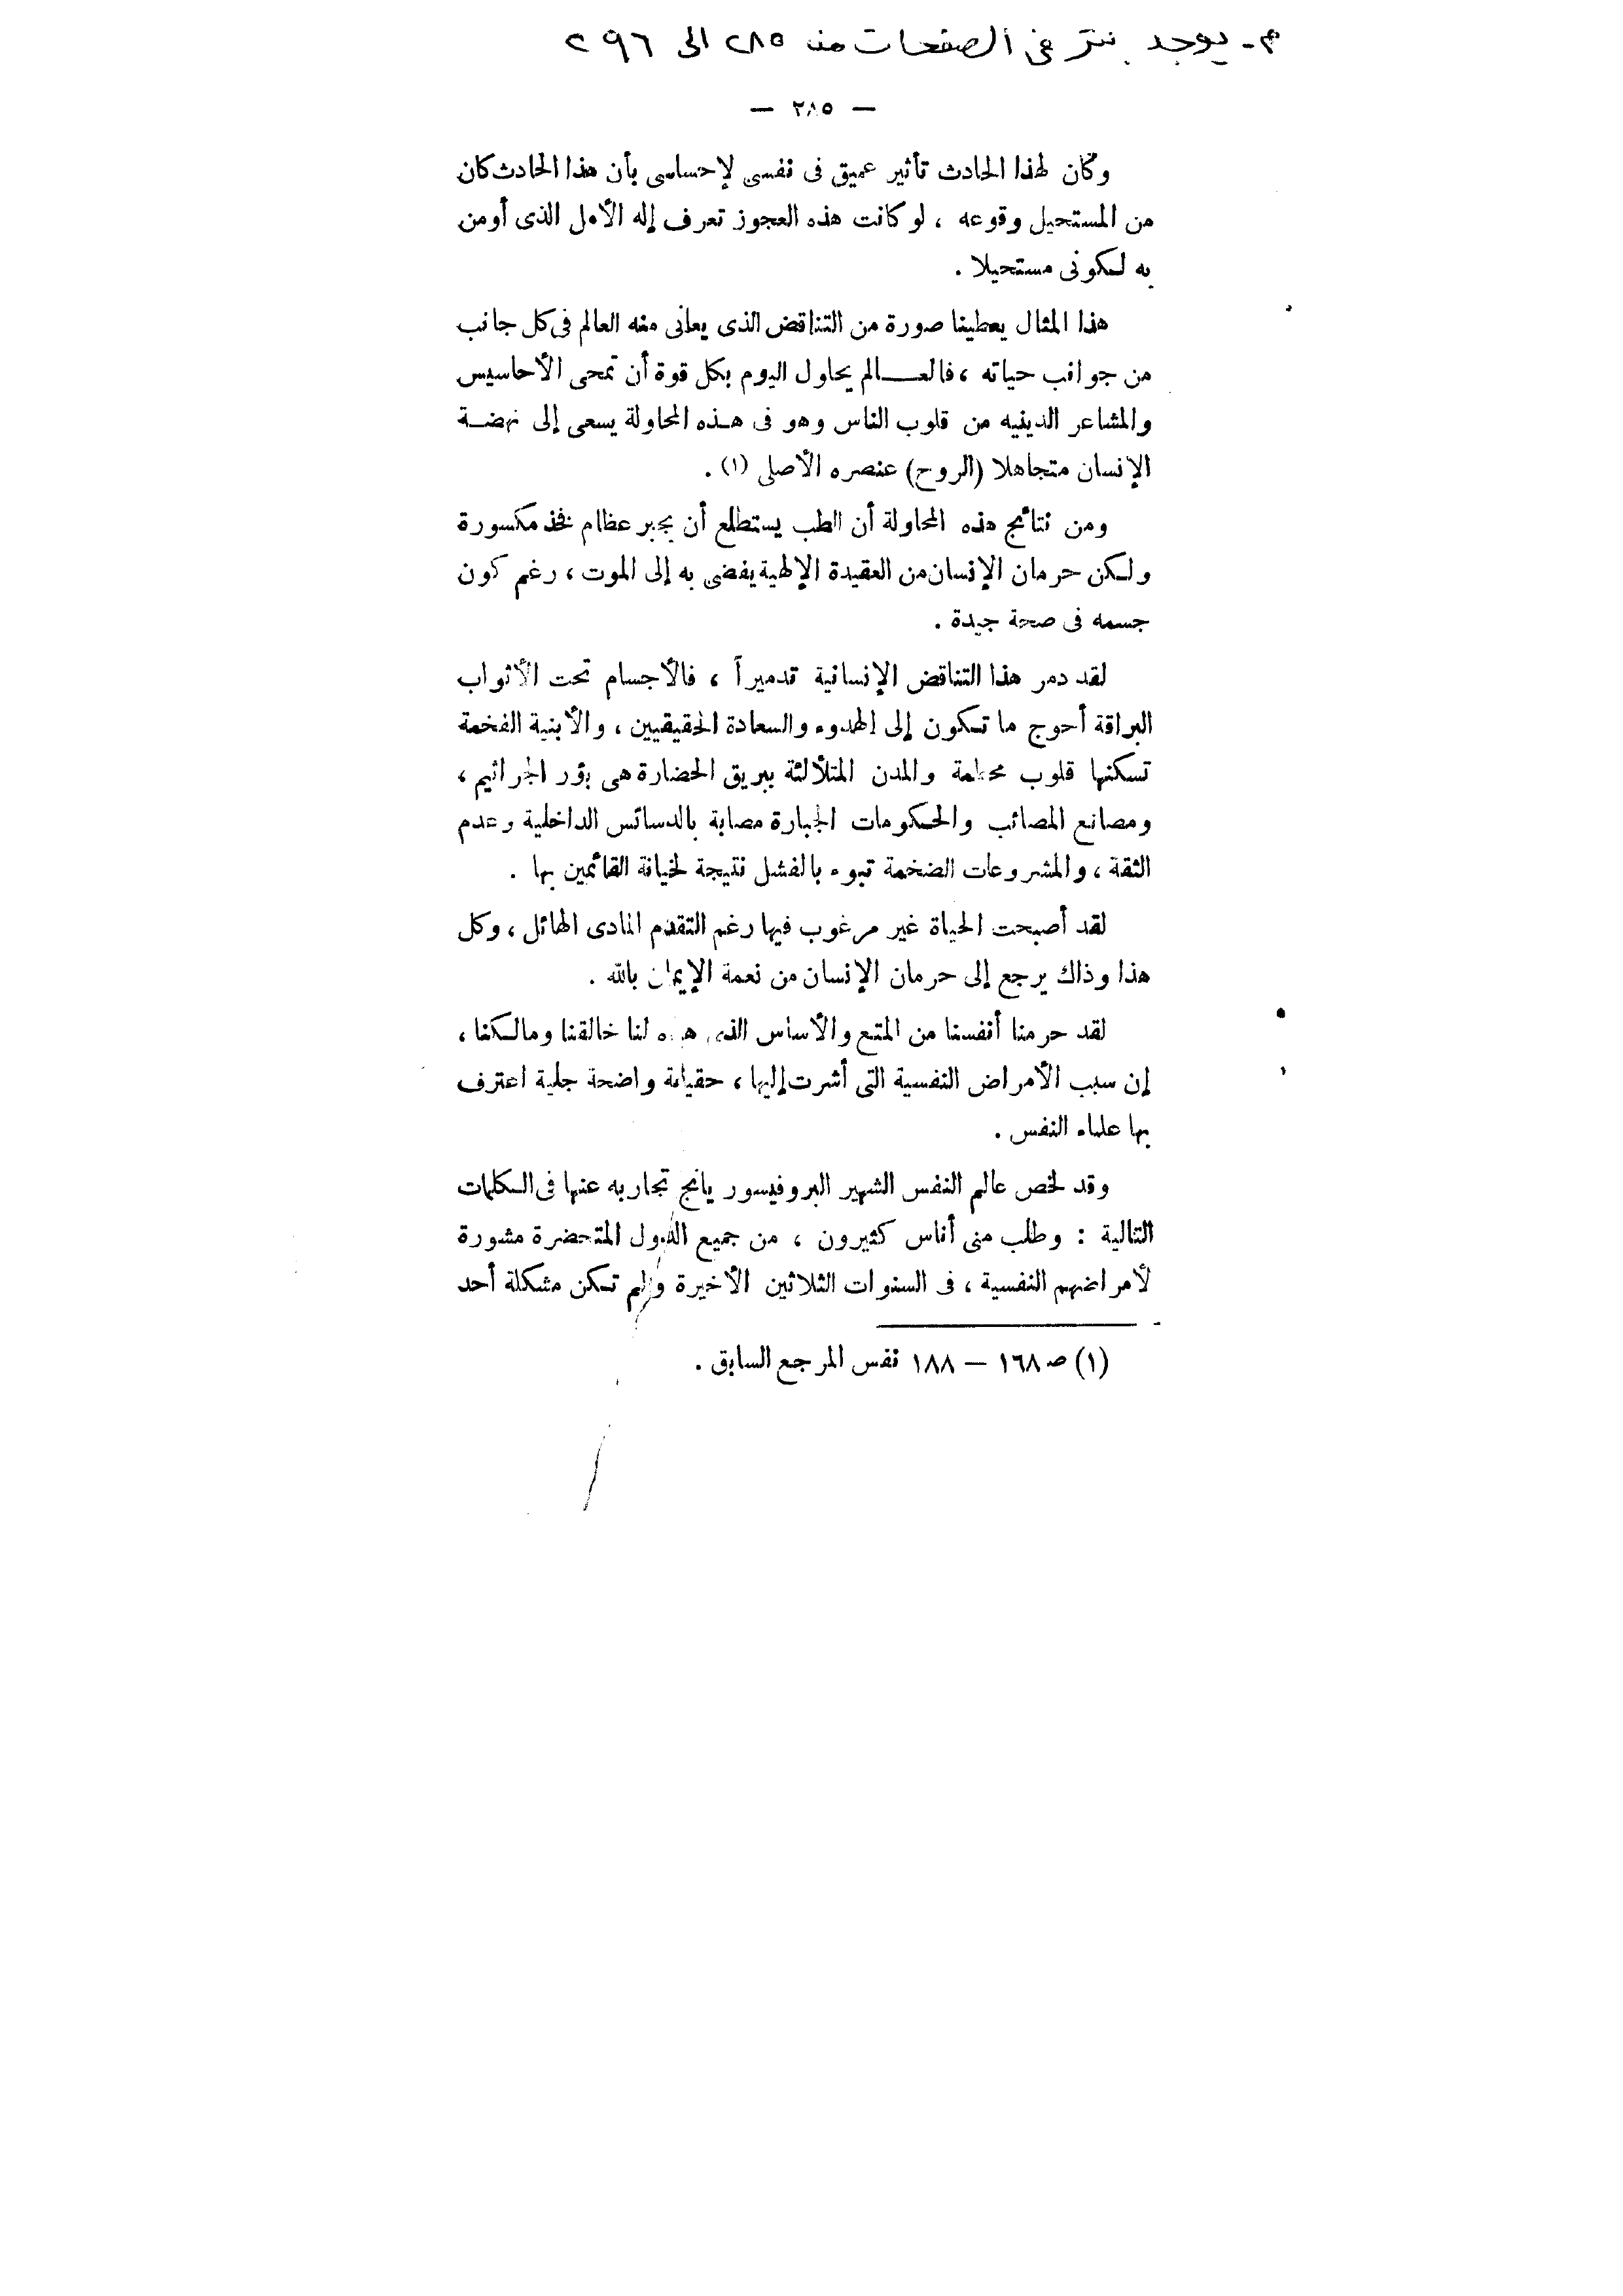 م - يوجد بتر فى الصفحات من ٢٨٥ الى ٢٩٦
— ٢٨٥ —
وكان لهذا الحادث تأثير عميق فى نفسى لإحساسى بأن هذا الحادث كان
من المستحيل وقوعه ، لو كانت هذه العجوز تعرف إله الأمل الذى أومن
به لكونى مستحيلا .
هذا المثال يعطينا صورة من التناقض الذى يعانى منه العالم فى كل جانب
من جوانب حياته ، فالعالم يحاول اليوم بكل قوة أن تمحى الأحاسيس
والمشاعر الدينيه من قلوب الناس وهو فى هذه المحاولة يسعى إلى نهضة
الإنسان متجاهلا (الروح) عنصره الأصلى (١) .
ومن نتائج هذه المحاولة أن الطب يستطلع أن يجبر عظام فخذ مكسورة
ولكن حرمان الإنسان من العقيدة الإلهية يفضى به إلى الموت ، رغم كون
جسمه فى صحة جيدة .
لقد دمر هذا التناقض الإنسانية تدميراً ، فالأجسام تحت الأثواب
البراقة أحوج ما تكون إلى الهدوء والسعادة الحقيقيين ، والأبنية الفخمة
تسكنها قلوب محطمة والمدن المتلألئة ببريق الحضارة هى بؤر الجراثيم ،
ومصانع المصائب والحكومات الجبارة مصابة بالدسائس الداخلية وعدم
الثقة ، والمشروعات الضخمة تبوء بالفشل نتيجة لخيانة القائمين بها .
لقد أصبحت الحياة غير مرغوب فيها رغم التقدم المادى الهائل ، وكل
هذا وذاك يرجع إلى حرمان الإنسان من نعمة الإيمان بالله .
لقد حرمنا أنفسنا من المتع والأساس الذى لنا خالقنا ومالكنا ،
إن سبب الأمراض النفسية التى أشرت إليها ، حقيقة واضحة جلية اعترف
بها علماء النفس .
وقد لخص عالم النفس الشهير البروفيسور يانج تجاربه عنها فى الكلمات
التالية : وطلب منى أناس كثيرون ، من جميع الدول المتحضرة مشورة
لأمراضهم النفسية ، فى السنوات الثلاثين الأخيرة ولم تكن مشكلة أحد
(١) صـ ١٦٨ — ١٨٨ نفس المرجع السابق .